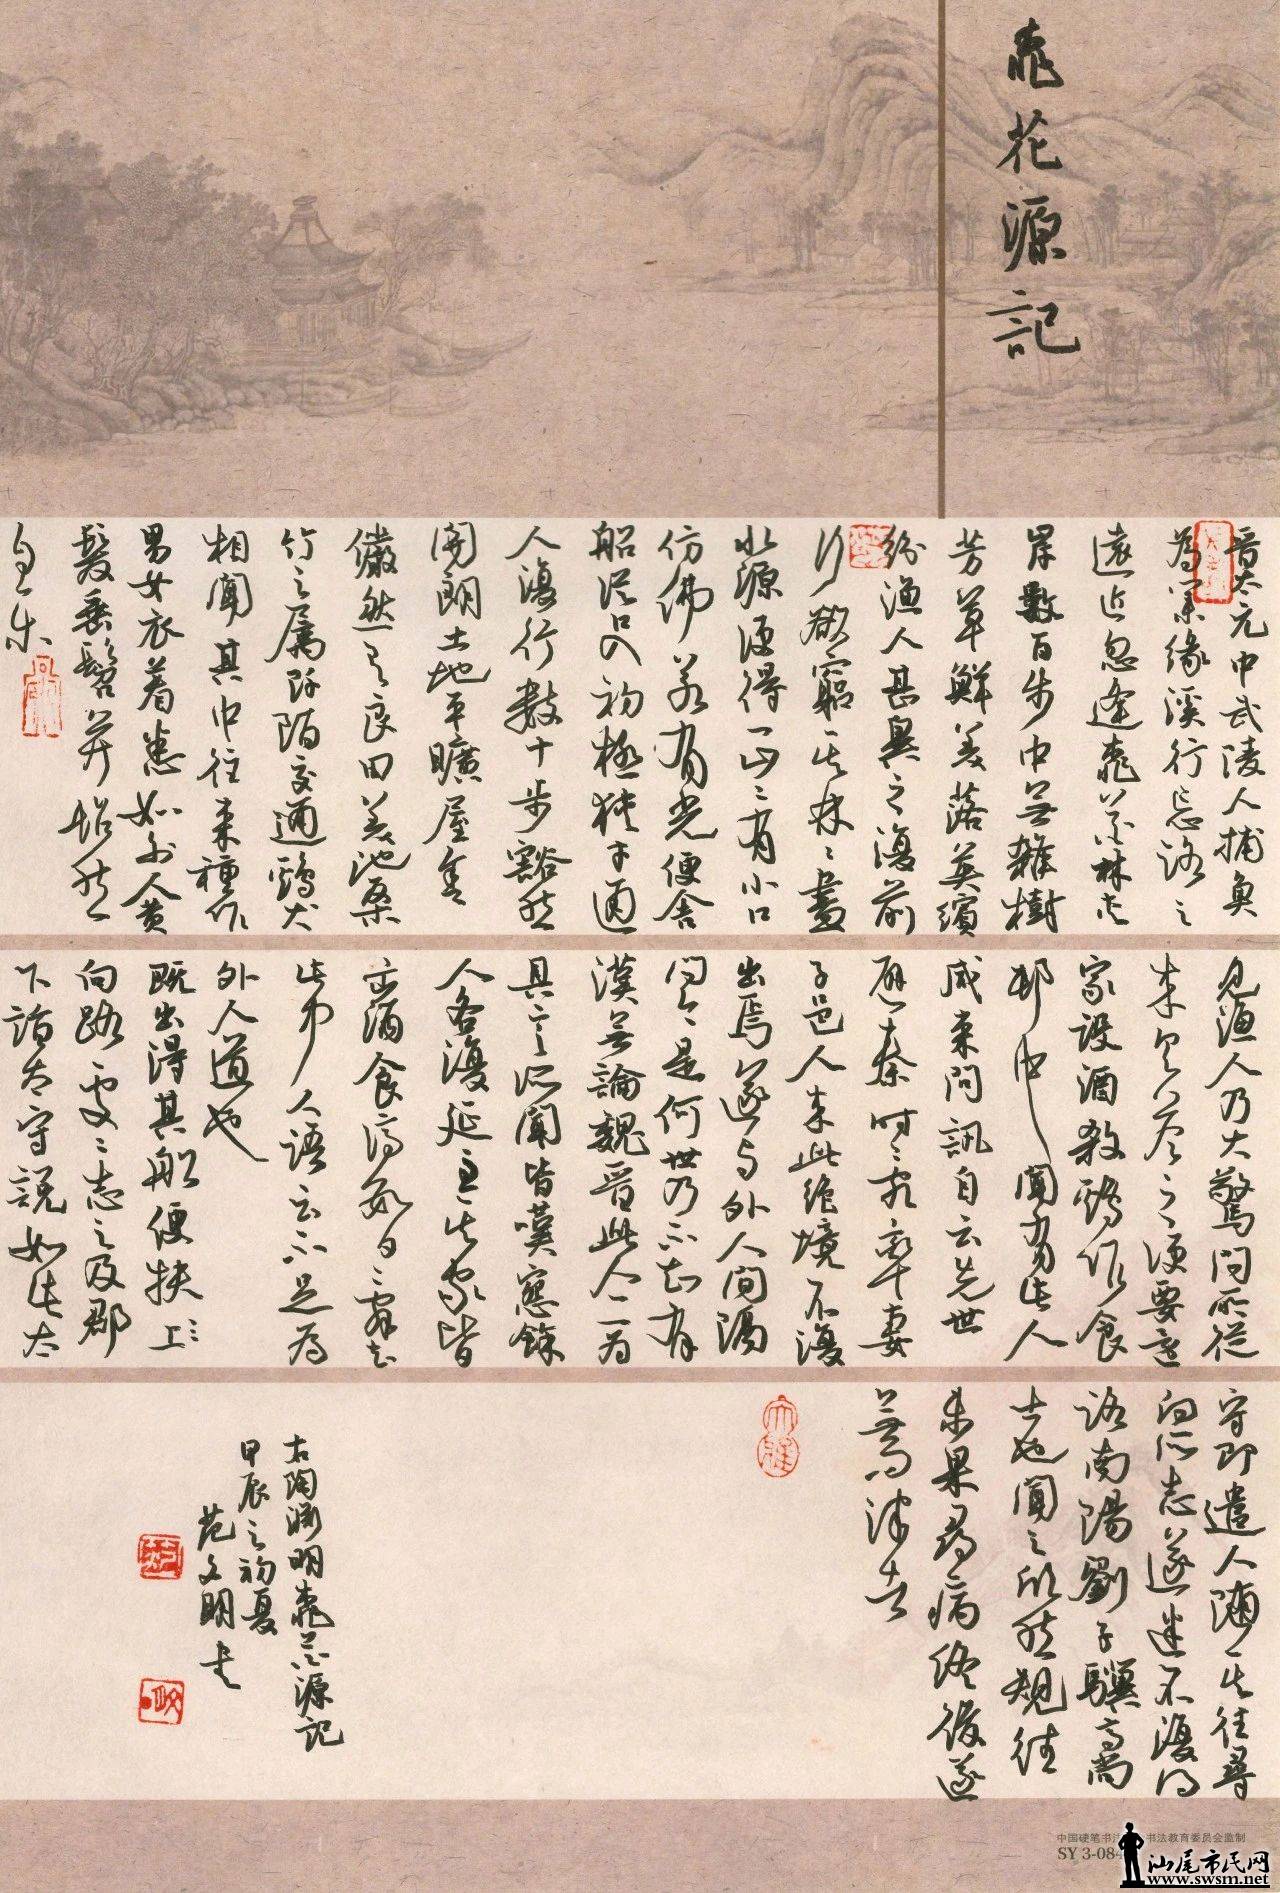 桃花源記
晉太元中武陵人捕魚
為業緣溪行忘路之
遠近忽逢桃花林夹
岸數百步中無雜樹
芳草鮮美落英繽
紛漁人甚異之復前
行欲窮其林〻盡
水源便得一山〻有小口
仿佛若有光便舍
船從口入初極狹才通
人復行數十步豁然
開朗土地平曠屋舍
儼然有良田美池桑
竹之屬阡陌交通鷄犬
相聞其中往來種作
男女衣著悉如外人黃
髮垂髫并怡然
自樂
見漁人乃大驚問所從
來具答之便要還
家設酒殺鷄作食
邨中聞有此人
咸來問訊自云先世
避秦時亂率妻
子邑人來此絕境不復
出焉遂與外人間隔
問今是何世乃不知有
漢無論魏晉此人一一為
具言所聞皆嘆惋餘
人各復延至其家皆
出酒食停數日辭去
此中人語云不足為
外人道也
既出得其船便扶
向路處〻志之及郡
下詣太守說如此太
守即遣人隨其往尋
向所志遂迷不復得
路南陽劉子驥高尚
士也聞之欣然規往
未果尋病終後遂
無問津者
右陶淵明桃花源記
甲辰之初夏
范文明書
中国硬笔书 书法教育委员会监制
SY 3-084
汕尾市民网
www.swsm.net